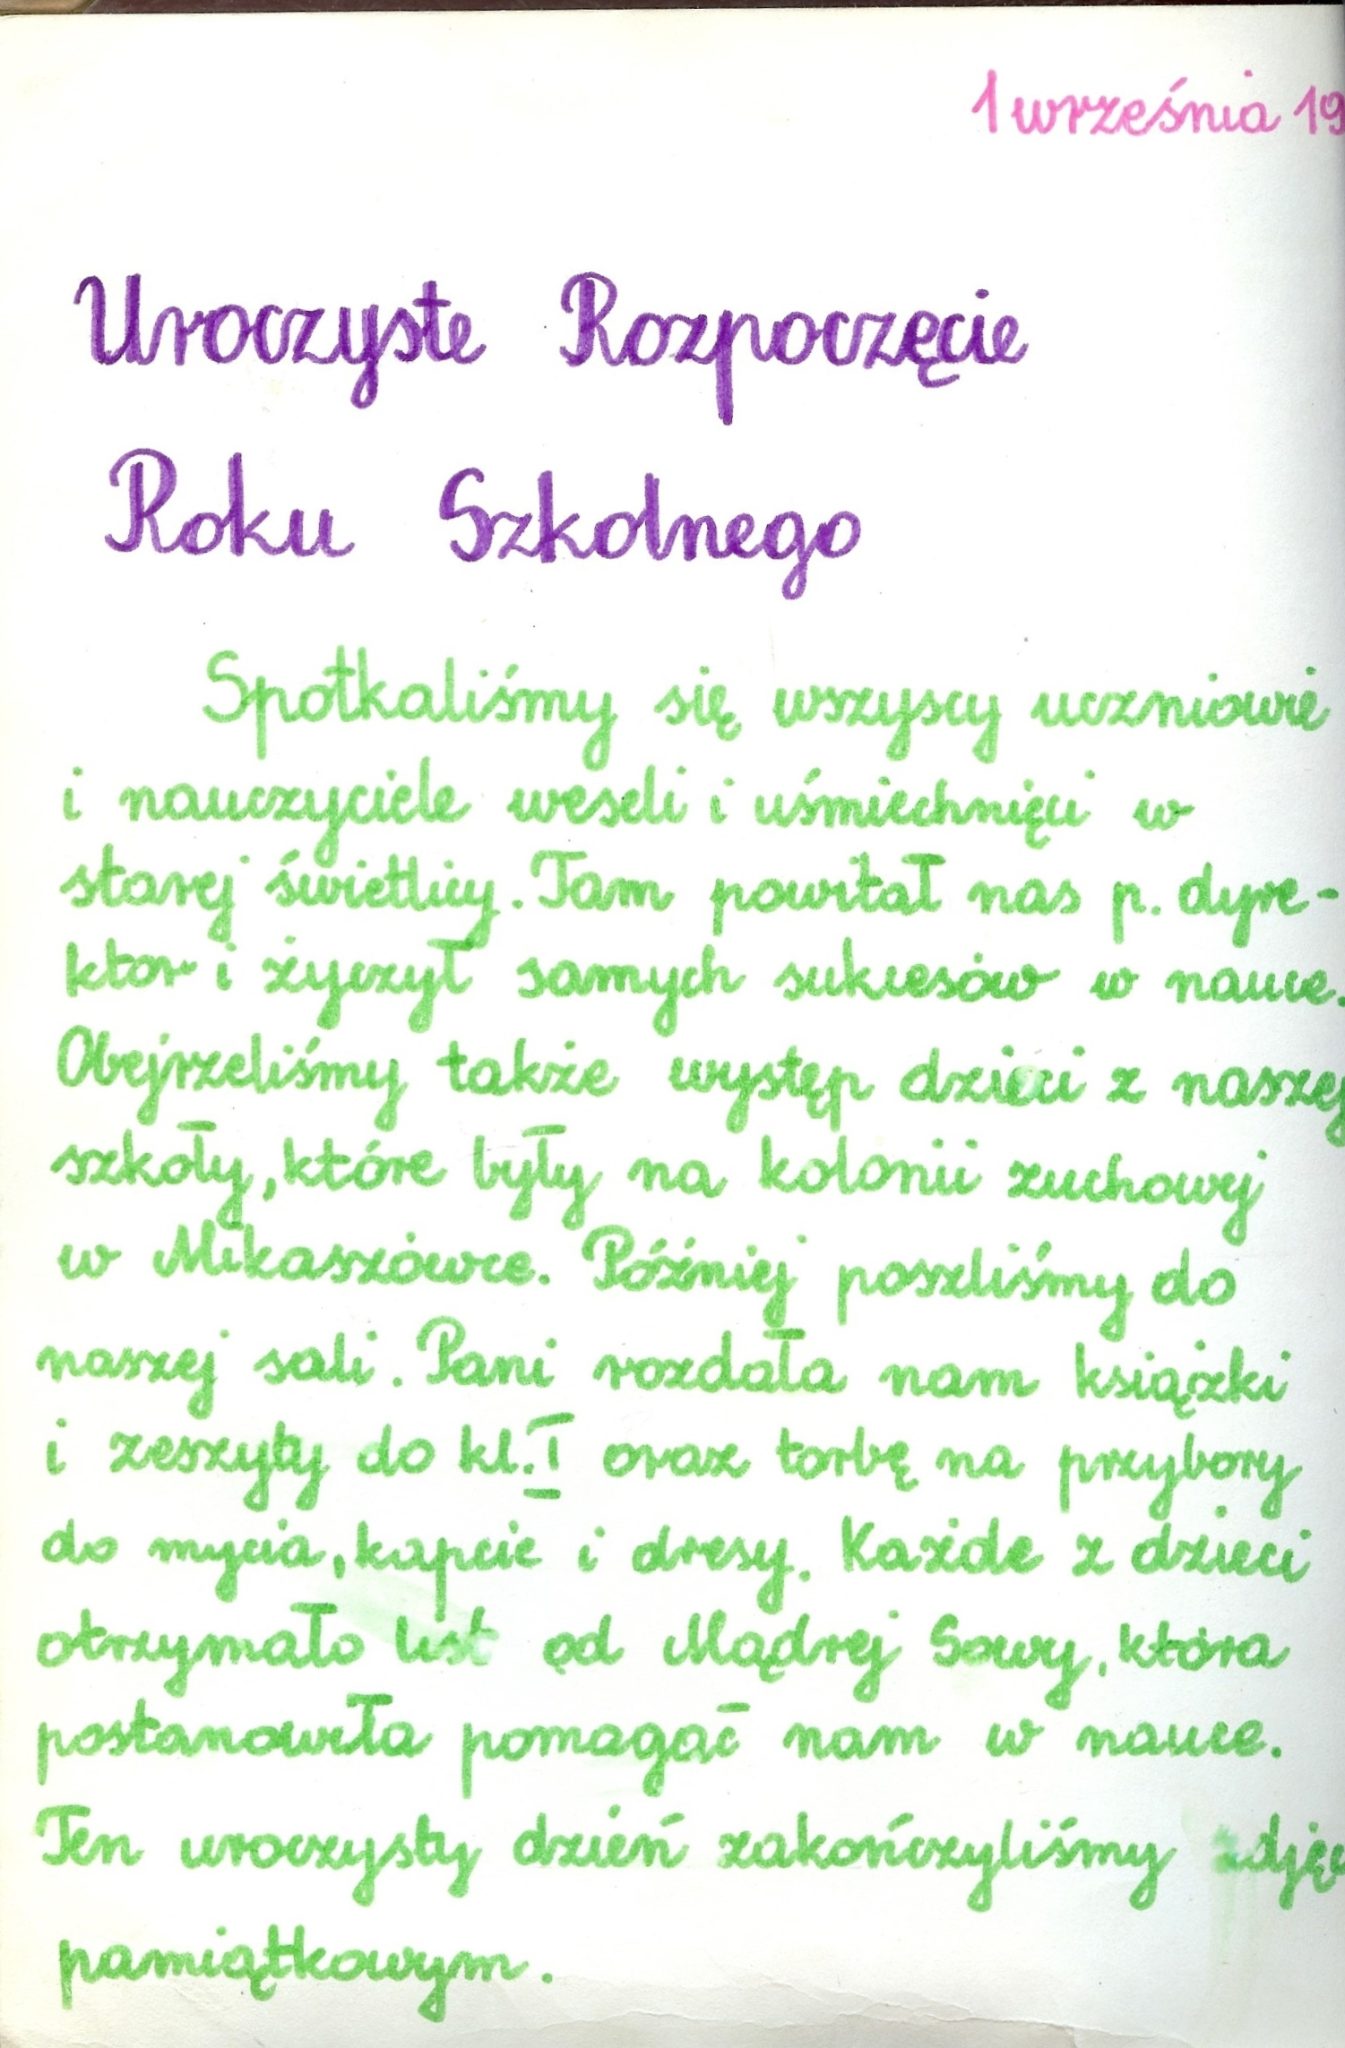 1 września 19
Uroczyste Rozpoczęcie
Roku Szkolnego
Spotkaliśmy się wszyscy uczniowie
i nauczyciele weseli i uśmiechnięci w
starej świetlicy. Tam powitał nas p. dyre-
ktor i życzył samych sukcesów w nauce.
Obejrzeliśmy także występ dzieci z naszej
szkoły, które były na kolonii zuchowej
w Mikaszówce. Później poszliśmy do
naszej sali. Pani rozdała nam książki
i zeszyty do kl. I oraz torbę na przybory
do mycia, kapcie i dresy. Każde z dzieci
otrzymało list od Mądrej Sowy, która
postanowiła pomagać nam w nauce.
Ten uroczysty dzień zakończyliśmy zdjęc
pamiątkowym.